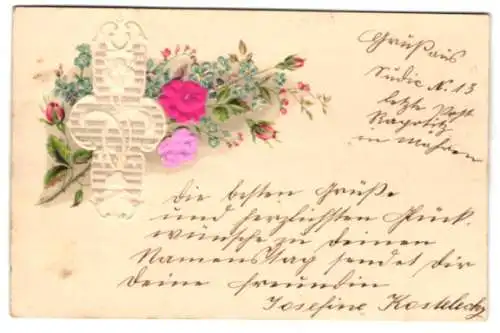 Gruß aus
Sudic N. 13
letzte Post
Raɡotitz
in Mähren
Die besten Grüße
und herzlichsten Glück-
wünsche zu deinen
Namenstag sendet dir
deine Freundin
Josefine Kostelecky